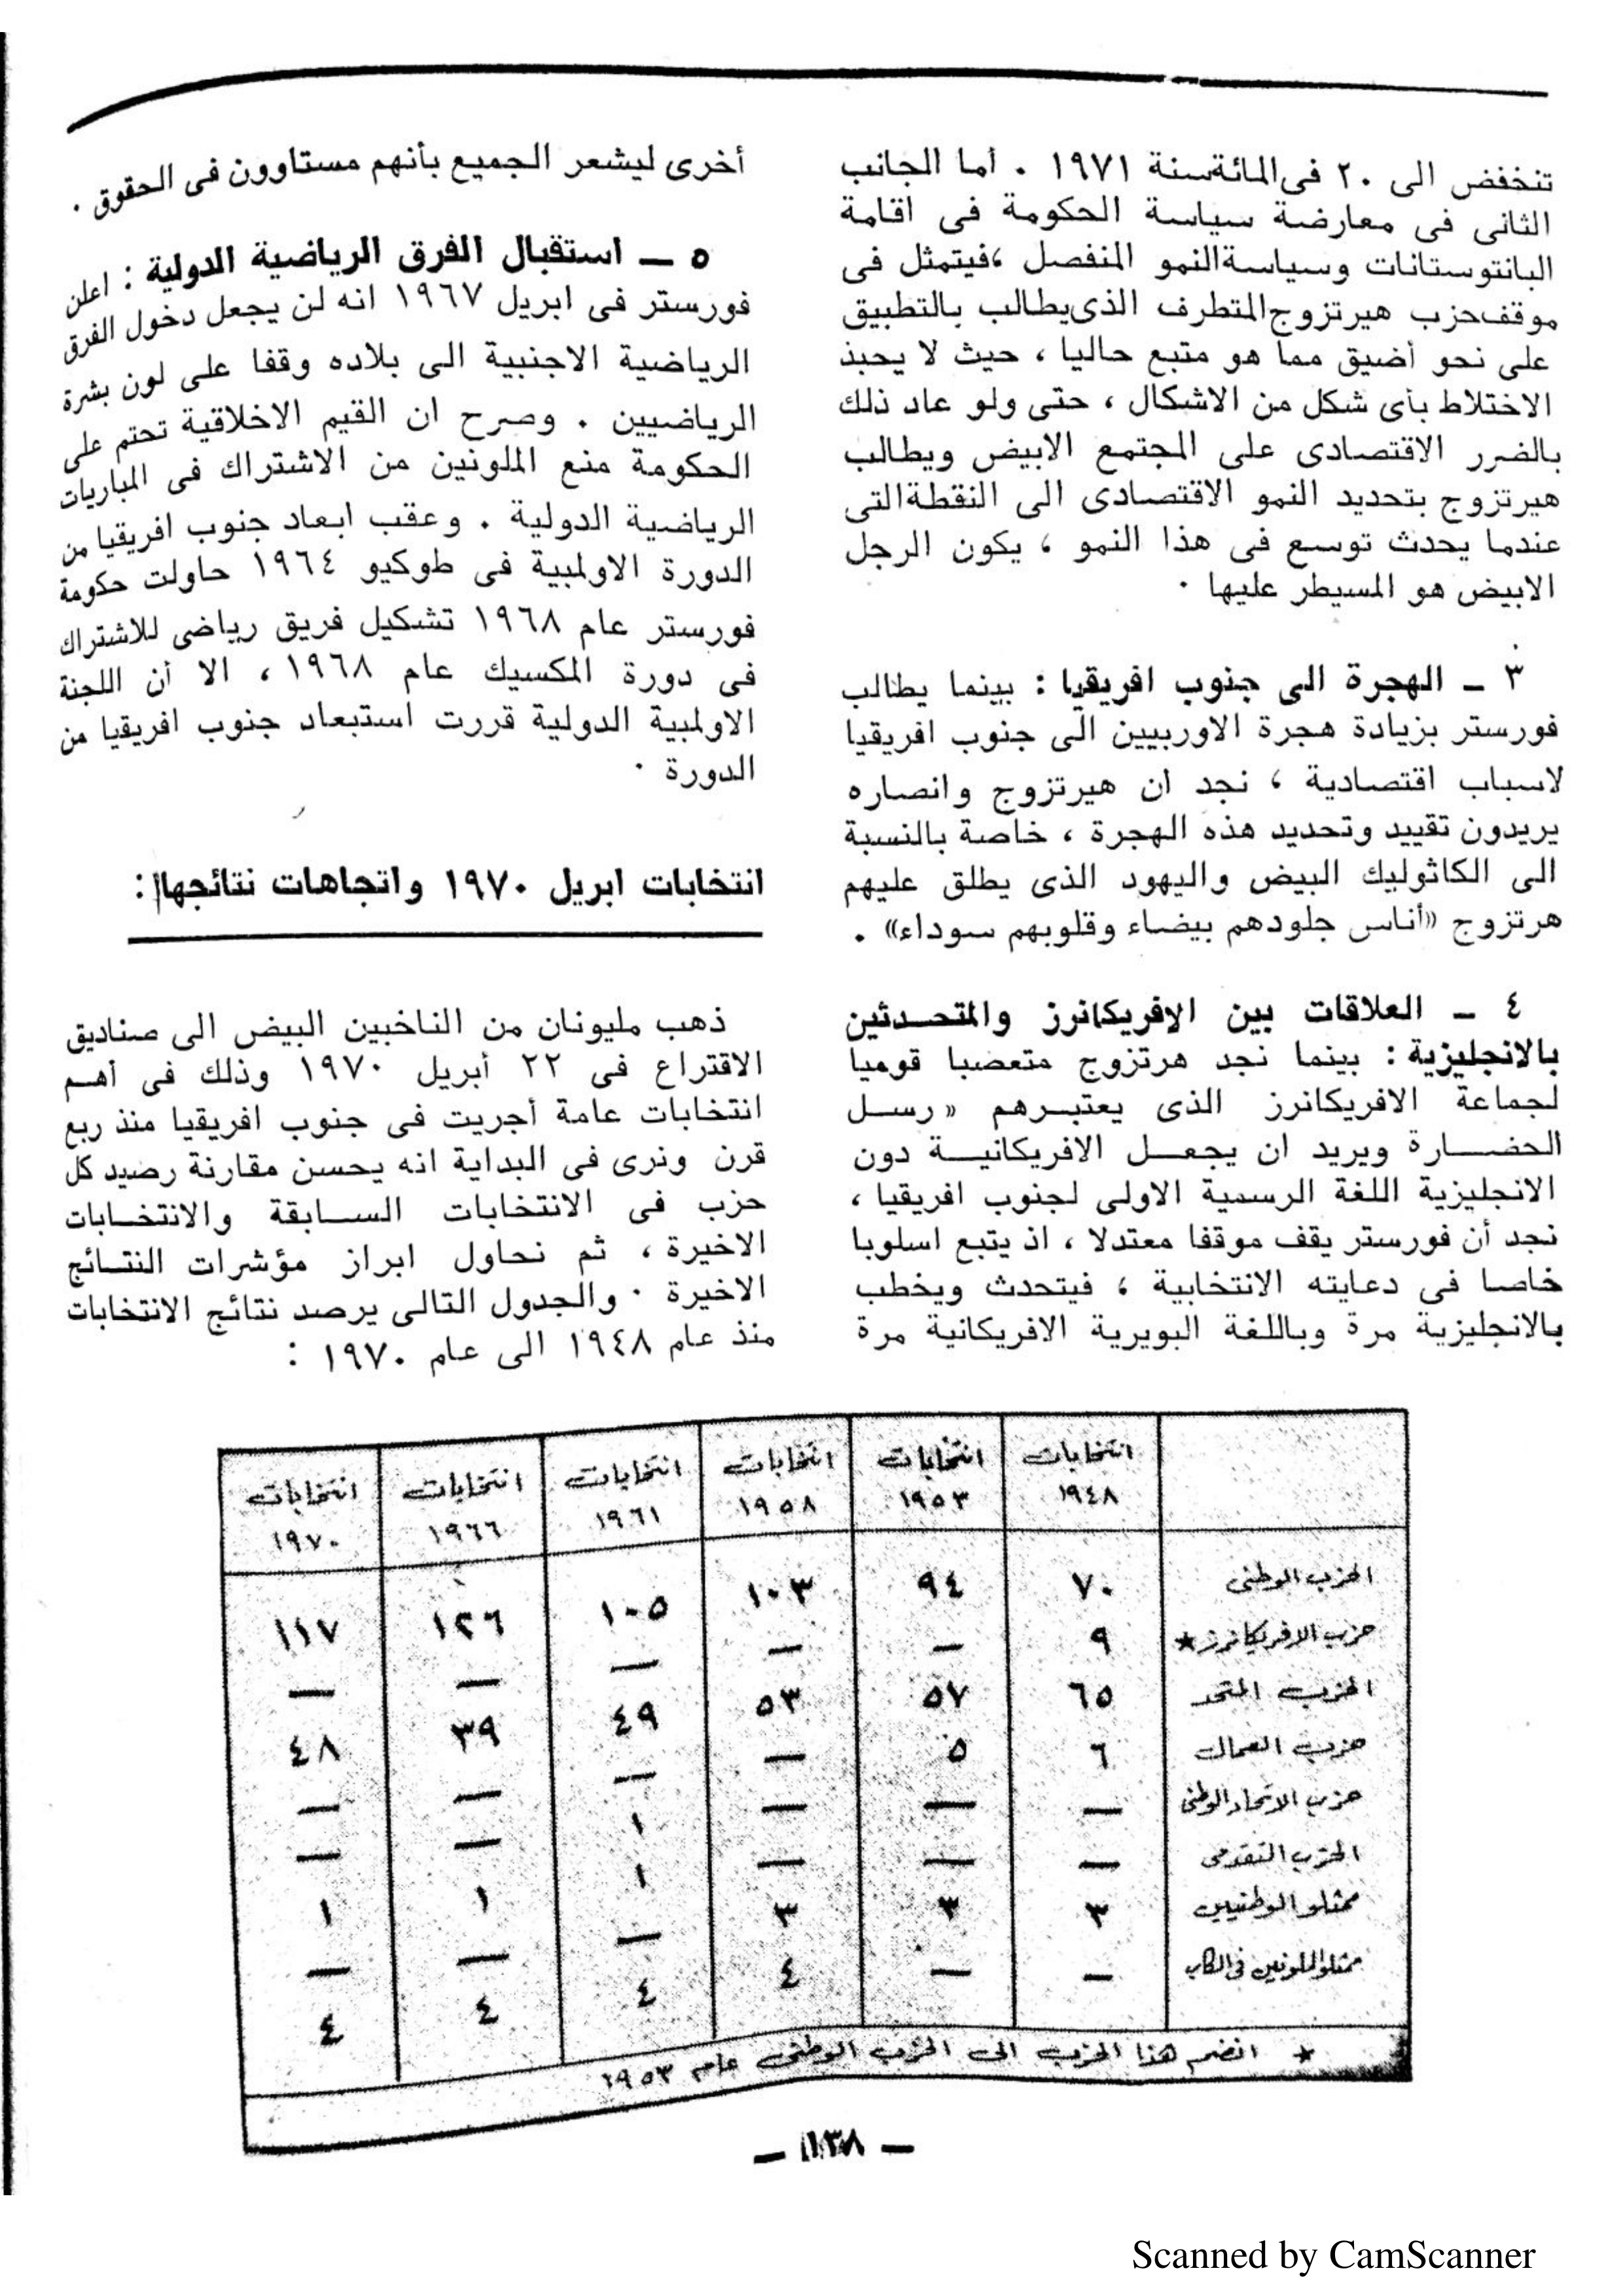 تنخفض الى ٢٠ فى المائة سنة ١٩٧١ . أما الجانب
الثانى فى معارضة سياسة الحكومة فى اقامة
البانتوستانات وسياسة النمو المنفصل ، فيتمثل فى
موقف حزب هيرتزوج المتطرف الذى يطالب بالتطبيق
على نحو أضيق مما هو متبع حاليا ، حيث لا يحبذ
الاختلاط بأى شكل من الاشكال ، حتى ولو عاد ذلك
بالضرر الاقتصادى على المجتمع الابيض ويطالب
هيرتزوج بتحديد النمو الاقتصادى الى النقطة التى
عندما يحدث توسع فى هذا النمو ، يكون الرجل
الابيض هو المسيطر عليها .
٣ ـ الهجرة الى جنوب افريقيا : بينما يطالب
فورستر بزيادة هجرة الاوربيين الى جنوب افريقيا
لاسباب اقتصادية ، نجد ان هيرتزوج وانصاره
يريدون تقييد وتحديد هذه الهجرة ، خاصة بالنسبة
الى الكاثوليك البيض واليهود الذى يطلق عليهم
هرتزوج «أناس جلودهم بيضاء وقلوبهم سوداء» .
٤ ـ العلاقات بين الافريكانرز والمتحدثين
بالانجليزية : بينما نجد هرتزوج متعصبا قوميا
لجماعة الافريكانرز الذى يعتبرهم « رسل
الحضارة ويريد ان يجعل الافريكانية دون
الانجليزية اللغة الرسمية الاولى لجنوب افريقيا ،
نجد أن فورستر يقف موقفا معتدلا ، اذ يتبع اسلوبا
خاصا فى دعايته الانتخابية ، فيتحدث ويخطب
بالانجليزية مرة وباللغة البويرية الافريكانية مرة
أخرى ليشعر الجميع بأنهم مستاوون فى الحقوق .
٥ ـ استقبال الفرق الرياضية الدولية : اعلن
فورستر فى ابريل ١٩٦٧ انه لن يجعل دخول الفرق
الرياضية الاجنبية الى بلاده وقفا على لون بشرة
الرياضيين . وصرح ان القيم الاخلاقية تحتم على
الحكومة منع الملونين من الاشتراك فى المباريات
الرياضية الدولية . وعقب ابعاد جنوب افريقيا من
الدورة الاولمبية فى طوكيو ١٩٦٤ حاولت حكومة
فورستر عام ١٩٦٨ تشكيل فريق رياضى للاشتراك
فى دورة المكسيك عام ١٩٦٨ ، الا أن اللجنة
الاولمبية الدولية قررت استبعاد جنوب افريقيا من
الدورة .
انتخابات ابريل ١٩٧٠ واتجاهات نتائجها :
ذهب مليونان من الناخبين البيض الى صناديق
الاقتراع فى ٢٢ أبريل ١٩٧٠ وذلك فى أهم
انتخابات عامة أجريت فى جنوب افريقيا منذ ربع
قرن ونرى فى البداية انه يحسن مقارنة رصيد كل
حزب فى الانتخابات السابقة والانتخابات
الاخيرة ، ثم نحاول ابراز مؤشرات النتائج
الاخيرة . والجدول التالى يرصد نتائج الانتخابات
منذ عام ١٩٤٨ الى عام ١٩٧٠ :
انتخابات ١٩٤٨ انتخابات ١٩٥٣ انتخابات ١٩٥٨ انتخابات ١٩٦١ انتخابات ١٩٦٦ انتخابات ١٩٧٠
الحزب الوطنى ٧٠ ٩٤ ١٠٣ ١٠٥ ١٢٦ ١١٧
حزب الافريكانرز ★ ٩ — — — — —
الحزب المتحد ٦٥ ٥٧ ٥٣ ٤٩ ٣٩ ٤٨
حزب العمال ٦ ٥ — — — —
حزب الاتحاد الوطنى — — — ١ — —
الحزب التقدمى — — — ١ ١ ١
ممثلو الوطنيين ٣ ٣ ٣ — — —
ممثلو الملونين فى الكاب — — ٤ ٤ ٤ ٤
★ انضم هذا الحزب الى الحزب الوطنى عام ١٩٥٣
— ١٣٨ —
Scanned by CamScanner